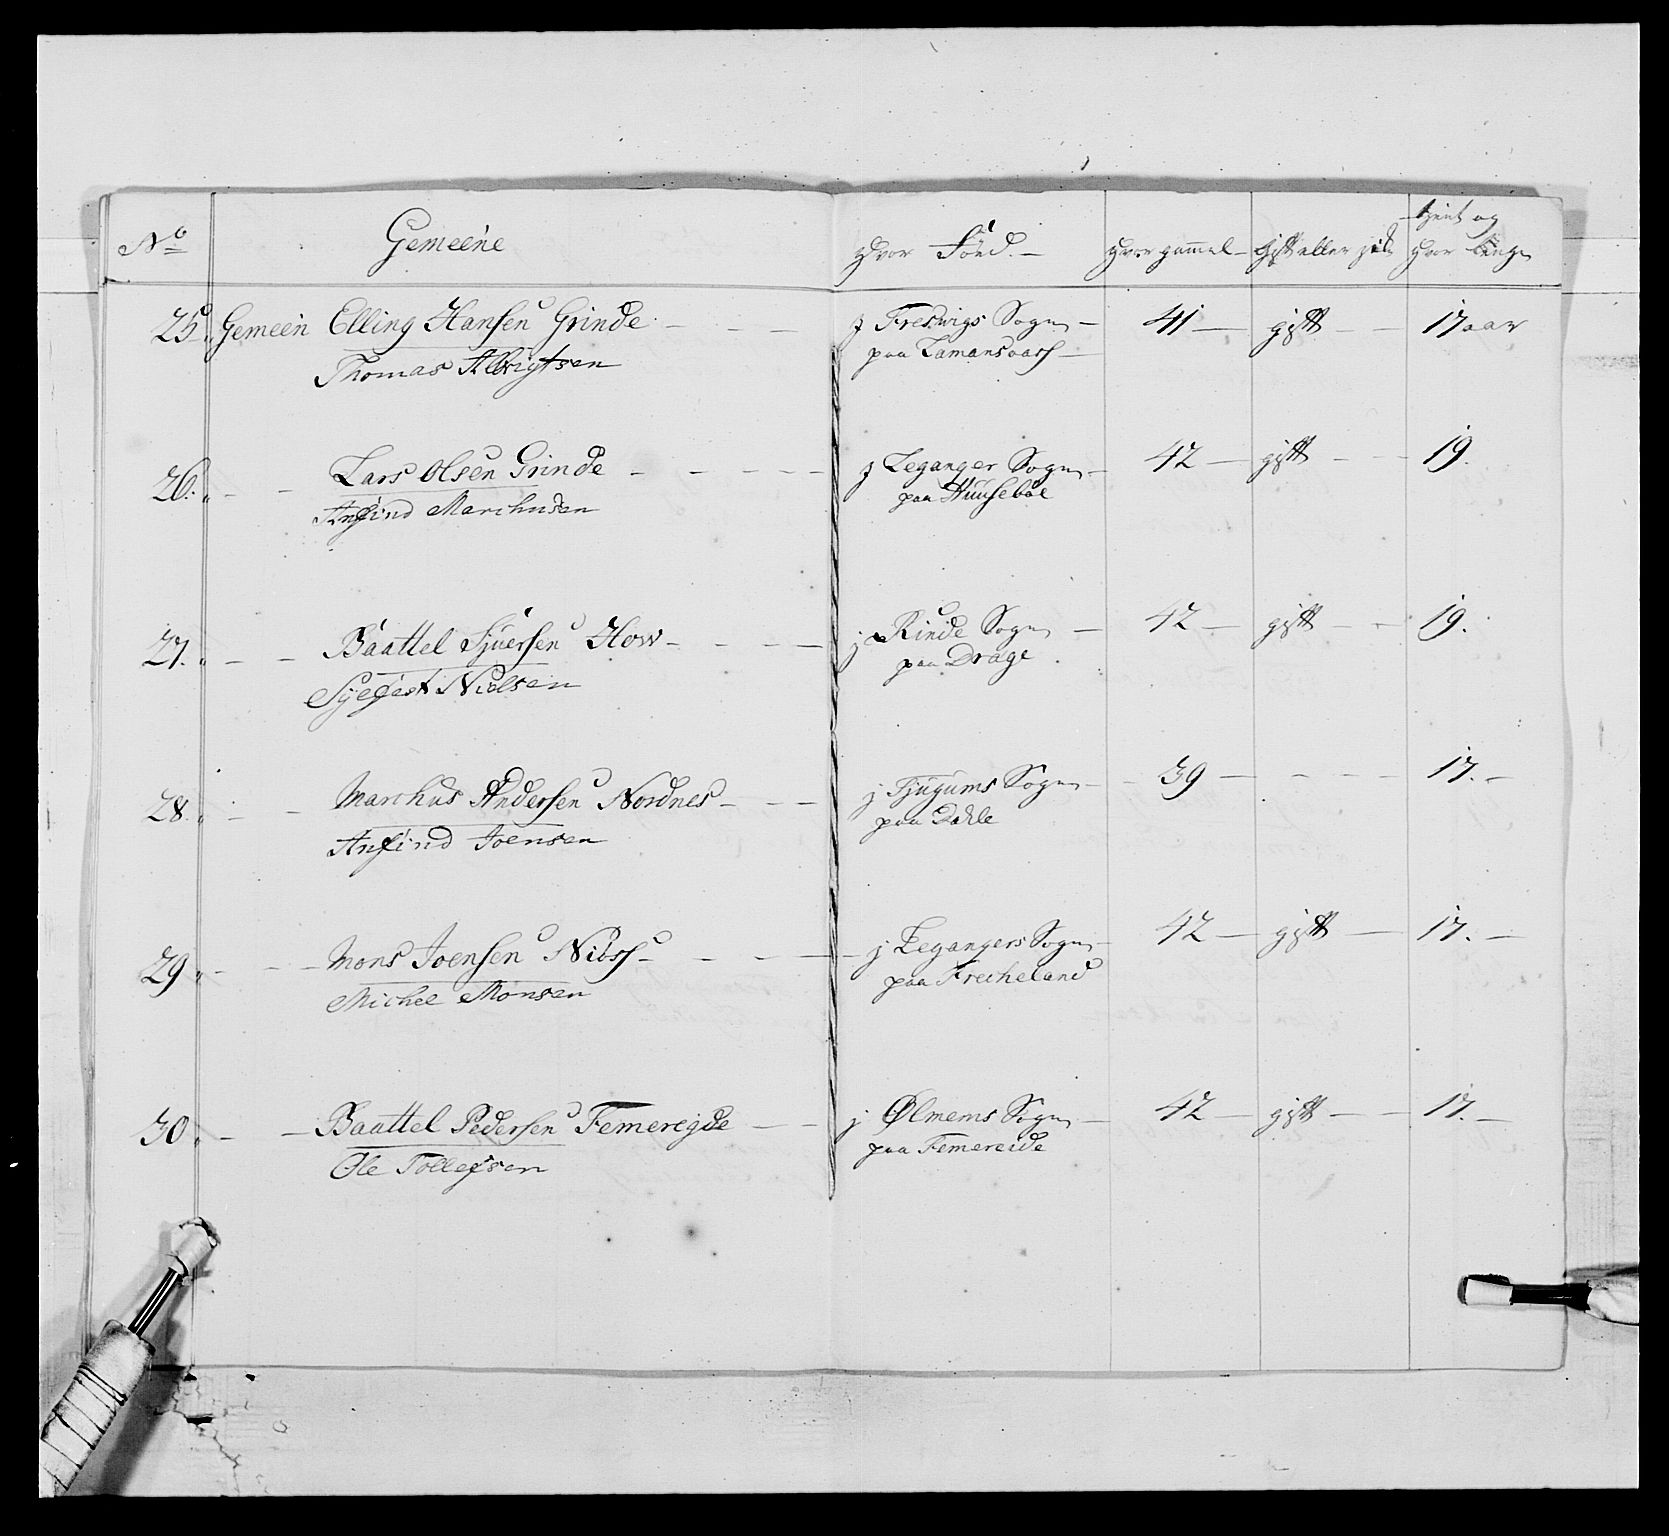 No Gemeene hvor Föed. hvor gammel gift eller tient og hvor lenge
25. Gemeen Elling Hansen Grinde J Freswigs Sogn 41 gift 17 aar
Thomas Albrigtsen paa
26. Lars Olsen Grinde J Leganger Sogn 42 gift 19.
Anfind Marchusen paa Huuseböe
27. Baattel Sjuersen How j Rinde Sogn 42 gift 19.
Nielsen paa Drage
28. Marchus Andersen Nordnes j Tjugums Sogn 39 17.
Anfind Joensen paa Dahle
29. Mons Joensen j Legangers Sogn 42 gift 17.
Michel Monsen paa Frecheland
30. Baattel Pedersen Femereigde j Ølmems Sogn 42 gift 17.
Ole Tollefsen paa Femereide